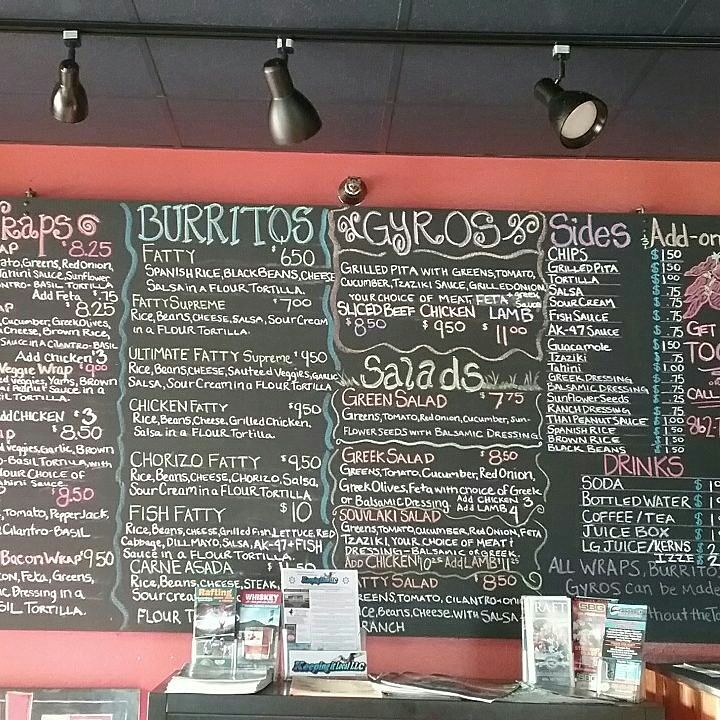 raps
AP $8.25
ato, Greens, Red Onion,
Tahini Sauce, Sunflower
NTRO-BASIL TORTILLA
Add Feta $.75
AP 8.25
Cucumber, Greek Olives,
Cheese, Brown Rice,
Sauce in a CILANTRO-BASIL
Add chicken $3
Veggie Wrap $9.00
ed veggies, Yams, Brown
ai Peanut Sauce in a
SIL TORTILLA.
Add CHICKEN $3
AP $8.50
d veggies, Garlic, Brown
-BASIL TORTILLA, with
YOUR CHOICE OF
ahini Sauce
$8.50
, Tomato, Pepper Jack,
Cilantro-BASIL
Bacon Wrap $9.50
CON, Feta, Greens,
Dressing in a
SIL TORTILLA.
BURRITOS
FATTY $6.50
SPANISH RICE, BLACK BEANS, CHEESE
SALSA in a FLOUR TORTILLA.
FATTY SUPREME $7.00
Rice, Beans, CHEESE, SALSA, Sour Cream
in a FLOUR TORTILLA.
ULTIMATE FATTY Supreme $9.50
Rice, Beans, CHEESE, Sauteed Veggies, Garlic,
SALSA, Sour Cream in a FLOUR TORTILLA
CHICKEN FATTY $9.50
Rice, Beans, Cheese, Grilled Chicken,
Salsa in a FLOUR Tortilla.
CHORIZO FATTY $9.50
Rice, Beans, CHEESE, CHORIZO, Salsa,
Sour Cream in a FLOUR TORTILLA
FISH FATTY $10
Rice, Beans, CHEESE, Grilled Fish, LETTUCE, RED
Cabbage, DILL MAYO, SALSA, AK-47 + FISH
Sauce in a FLOUR TORTILLA.
CARNE ASADA
Rice, Beans, CHEESE, STEAK,
Sour cream
FLOUR T
GYROS
GRILLED PITA WITH GREENS, TOMATO,
CUCUMBER, TZAZIKI SAUCE, GRILLED ONION,
YOUR CHOICE OF MEAT, FETA + greek Sauce
SLICED BEEF CHICKEN LAMB
$8.50 $9.50 $11.00
Salads
GREEN SALAD $7.75
Greens, TOMATO, Red Onion, Cucumber, Sun-
FLOWER SEEDS WITH BALSAMIC DRESSING
GREEK SALAD $8.50
GREENS, TOMATO, Cucumber, Red Onion,
Greek Olives, Feta with choice of Greek
or Balsamic Dressing Add CHICKEN 3
Add LAMB 4
SOUVLAKI SALAD
Greens, TOMATO, CUCUMBER, Red Onion, FETA
TZAZIKI, YOUR CHOICE OF MEAT &
DRESSING-BALSAMIC or GREEK.
ADD CHICKEN 10.25 Add LAMB 11.25
FATTY SALAD $8.50
GREENS, TOMATO, CILANTRO-onion
Rice, Beans, Cheese, WITH SALSA
RANCH
Sides
CHIPS $1.50
GRILLED PITA $1.50
TORTILLA $1.00
SALSA $.75
SOUR CREAM $.75
FISH SAUCE $.75
AK-47 SAUCE $.75
Guacamole $1.50
Tzaziki $.75
Tahini $1.00
GREEK DRESSING $.75
BALSAMIC DRESSING $.75
Sunflower Seeds $.25
RANCH DRESSING $.75
THAI PEANUT SAUCE $1.00
SPANISH RICE $1.50
BROWN RICE $1.50
BLACK BEANS $1.50
Add-on
GET
TO
CALL
862-7
DRINKS
SODA $1
BOTTLED WATER $1
COFFEE / TEA $1
JUICE BOX $1
LG JUICE / KERNS $2
IZZE $2
ALL WRAPS, BURRITO
GYROS can be made
thout the To
Rafting
WHISKEY
Keeping it Local LLC
RAFT